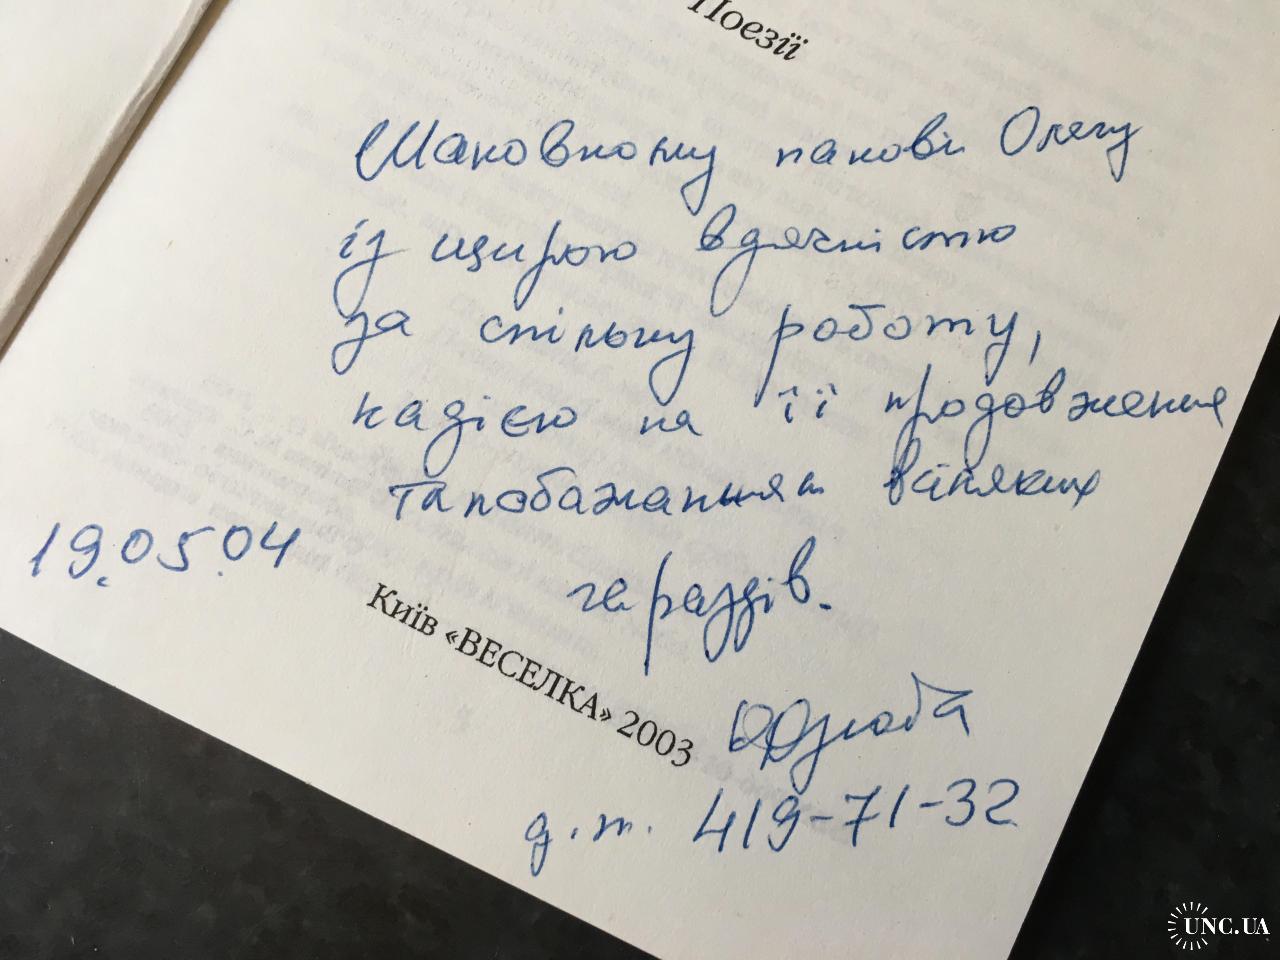 Поезії
Шановному панові Олегу
із щирою вдячністю
за спільну роботу,
надією на її продовження
та побажанням всіляких
гараздів.
19.05.04
Київ «ВЕСЕЛКА» 2003
д.т. 419-71-32
UNC.UA